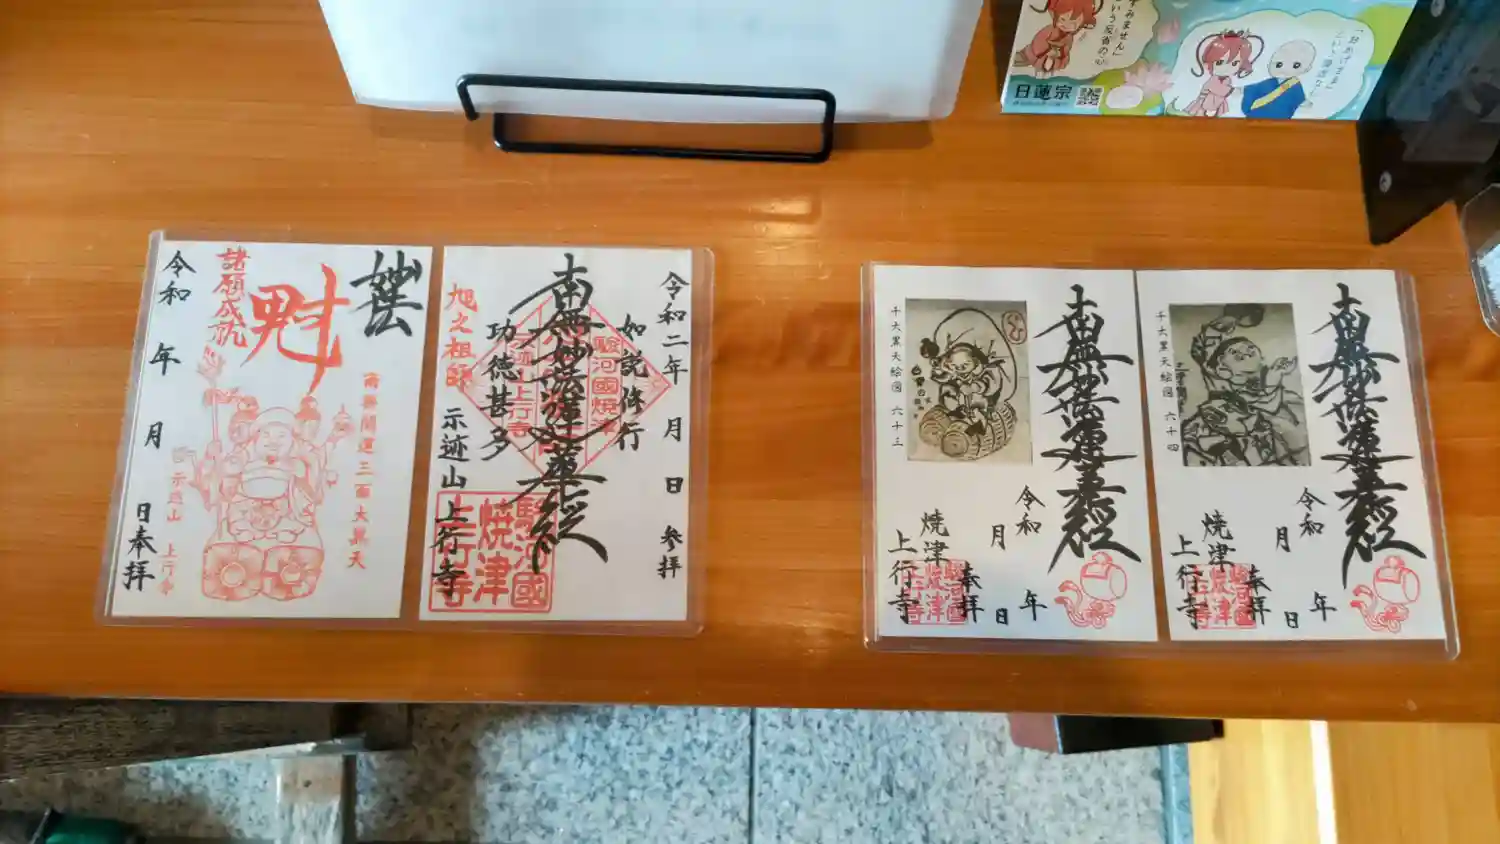 すみません」
という反省の
「おかげさま」
日蓮宗
妙法
魁
諸願成就
南無開運三面大黒天
示迹山 上行寺
令和 年 月 日奉拝
令和二年 月 日 参拝
如説修行
南無妙法蓮華経
駿河國焼津
示迹山上行寺
功徳甚多
旭之祖師
示迹山上行寺
駿河國
焼津
上行寺
南無妙法蓮華経
千大黒天絵図 六十三
令和 年
月 日
奉拝
焼津
上行寺
駿河國
焼津
上行寺
南無妙法蓮華経
千大黒天絵図 六十四
令和 年
月 日
奉拝
焼津
上行寺
駿河國
焼津
上行寺